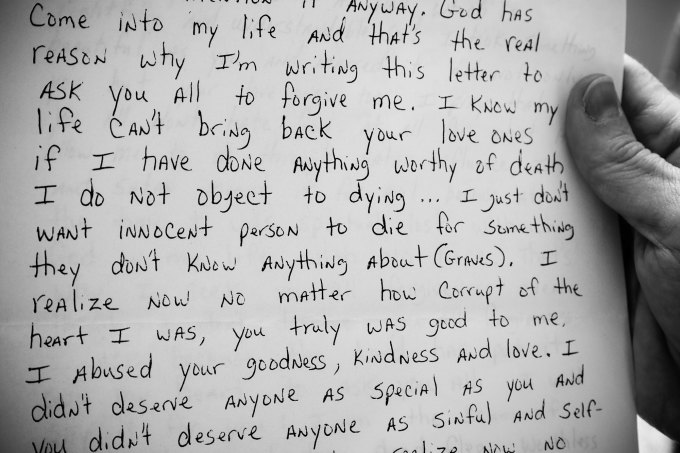 IT ANYWAY. GOD HAS
COME INTO MY life AND that's the reAl
reASON why I'm writing this letter to
ASK you All to forgive me. I KNOW my
life CAN'T bring bACK your love ONES
if I hAVE dONE ANything worthy of deAth
I do NOT object to dying ... I just don't
wANt iNNOCENT persON to die for something
they don't KNOW ANything About (GRAVES). I
reAlize NOW NO mAtter how Corrupt of the
heArt I WAS, you truly wAS good to me,
I Abused your goodNess, KiNdNess AND love. I
didN't deserve ANyONE AS SpeciAl AS you AND
you didN't deserve ANyONE AS SiNful AND Self-
reAlize NOW NO